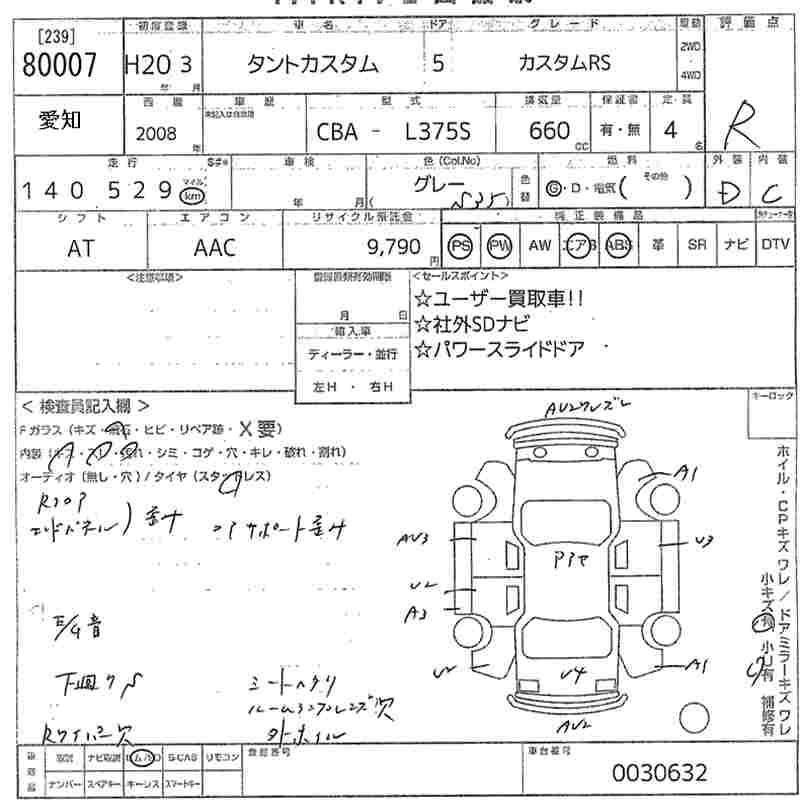 [239]
80007
初度登録 車名 ドア グレード 駆動 評価点
H20 3 タントカスタム 5 カスタムRS 2WD・4WD
年 月
愛知 西暦 車歴 型式 排気量 保証書 定員
2008 年 CBA - L375S 660 CC 有・無 4 名 R
走行 $#* 車検 色(Col.No) 燃料 外装 内装
140529 マイル km 年 月 グレー 色替 G・D・電気( その他 ) D C
シフト エアコン リサイクル預託金 純正装備品
AT AAC 9,790 円 PS PW AW エアB ABS 革 SR ナビ DTV
<注意事項> <セールスポイント>
☆ユーザー買取車!!
月 日 ☆社外SDナビ
輸入車 ☆パワースライドドア
ディーラー・並行
左H ・ 右H
< 検査員記入欄 > キーロック
Fガラス(キズ・飛石・ヒビ・リペア跡・X要)
内装(キズ・汚れ・シミ・コゲ・穴・キレ・破れ・割れ)
オーディオ(無し・穴)/タイヤ(スタッドレス)
AU2 ワレズレ
A1
Rフロア
エンドパネル)歪み コアサポート歪み
AU3 U3
Pアセ
U2
A3
E/G音
U2 U4 A1
下廻りS シートヘタリ
ルームランプレンズ欠
Rワイパー欠 外ホイル AU2
ホイル・CPキズワレ/ドアミラーキズワレ
小キズ有 小U有 補修有
後部品 取説 ナビ取説 S-CAS リモコン 登録番号 車台番号
ナンバー スペアキー キーレス スマートキー 0030632